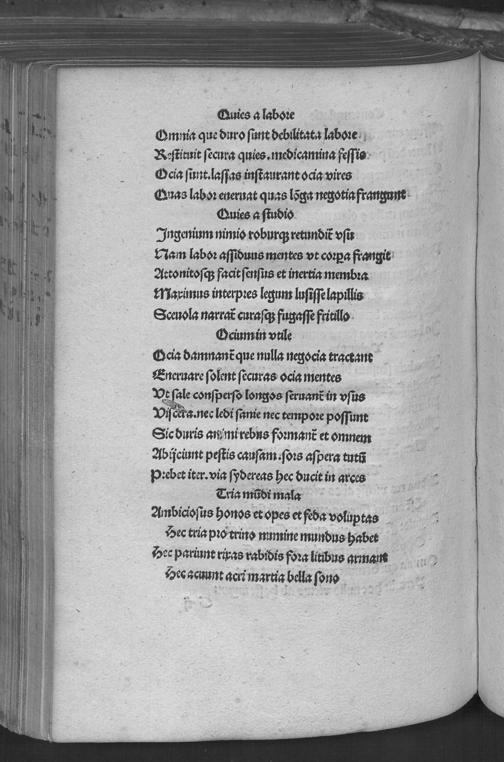 Quies a labore
Omnia que duro sunt debilitata labore
Restituit secura quies. medicamina fessis
Ocia sunt. lassas instaurant ocia vires
Quas labor eneruat quas lōga negotia frangunt
Quies a studio
Ingenium nimio roburqꝫ retundit̄ vsu
Nam labor assiduus mentes vt corpa frangit
Attonitosqꝫ facit sensus et inertia membra
Maximus interpres legum lusisse lapillis
Sceuola narrat̄ curasqꝫ fugasse fritillo
Ocium in vtile
Ocia damnant̄ que nulla negocia tractant
Eneruare solent securas ocia mentes
Vt sale consperso longos seruant̄ in vsus
Viscera. nec ledi sanie nec tempore possunt
Sic duris animi rebus formant̄ et omnem
Abijciunt pestis causam. sors aspera tutū
Prebet iter. via sydereas hec ducit in arces
Tria mūdi mala
Ambiciosus honos et opes et feda voluptas
Hec tria pro trino numine mundus habet
Hec pariunt rixas rabidis fora litibus armant
Hec acuunt acri martia bella sono